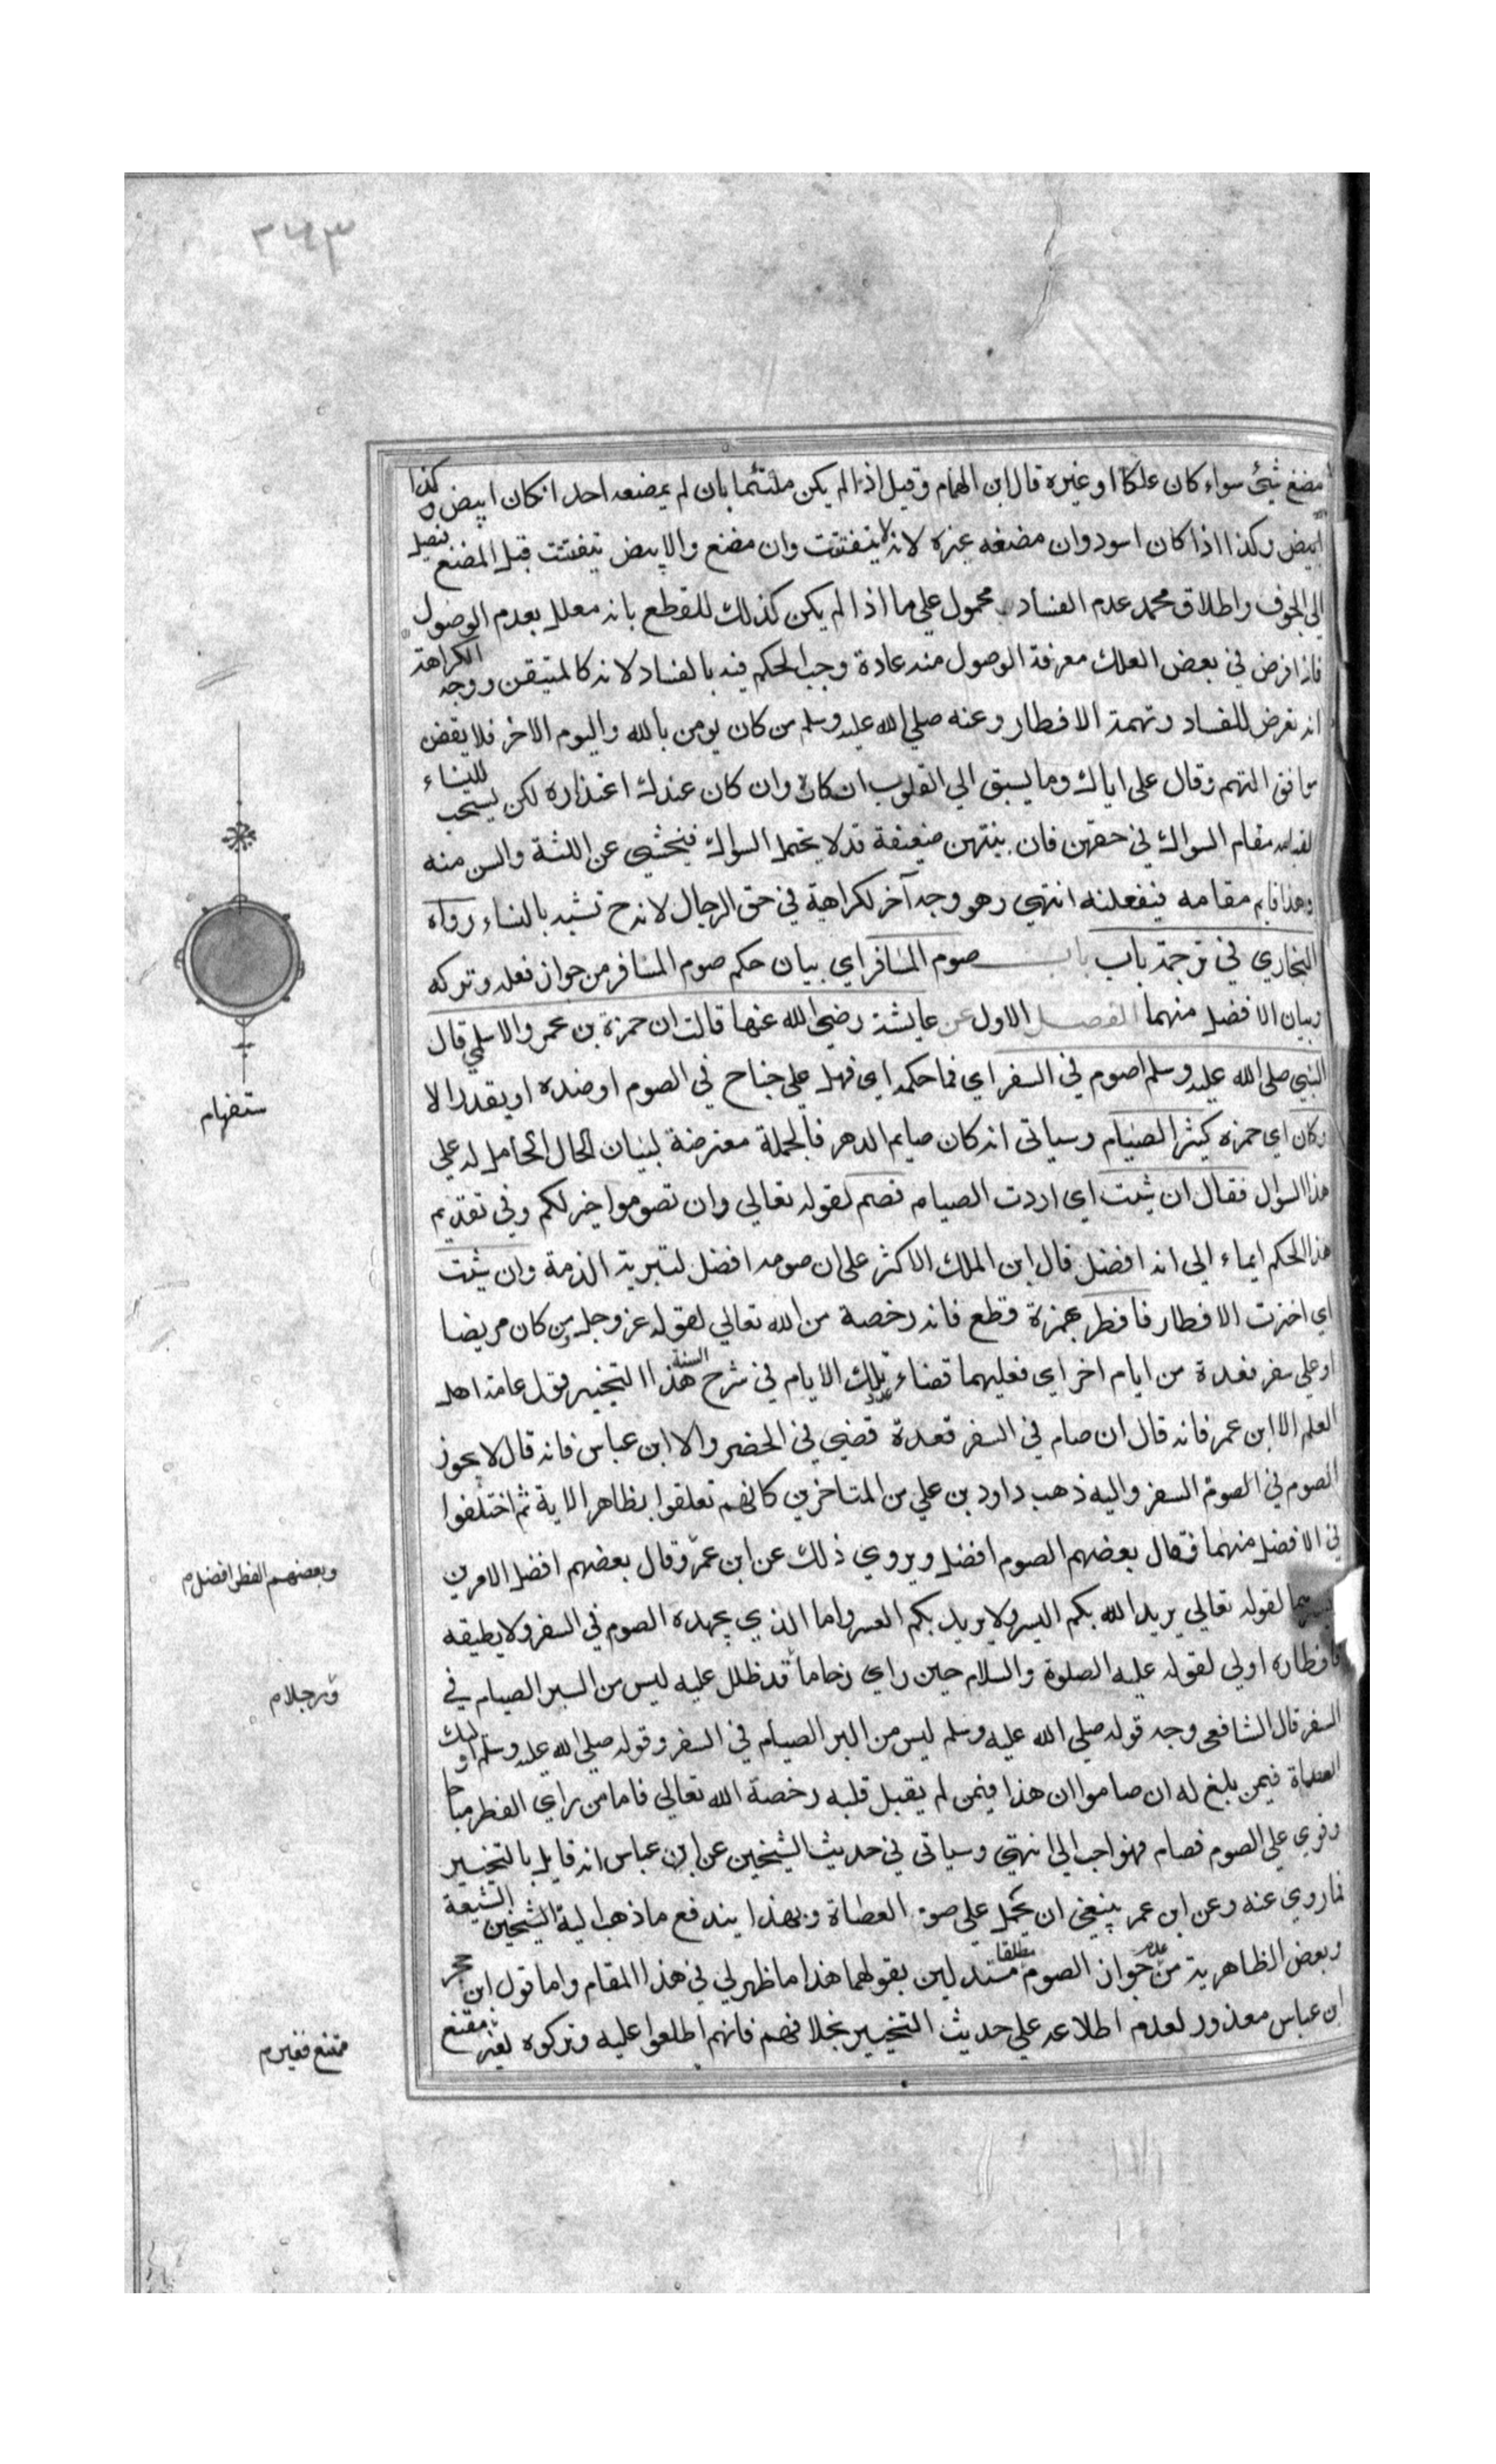 ٣٦٣
مضغ شئ سواء كان علكا او غيره قال ابن الهمام وقيل اذا لم يكن ملتئما بان لم يمضغه احد انكان ابيض وكذا
ابيض وكذا اذا كان اسود وان مضغه غيره لانه لا يتفتت وان مضغ والابيض يتفتت قبل المضغ فيصل
الى الجوف واطلاق محمد عدم الفساد محمول علي ما اذا لم يكن كذلك للقطع بانه معلل بعدم الوصول
فاذا فرض في بعض العلك معرفة الوصول منه عادة وجب الحكم فيه بالفساد لانه كالمتيقن ووجه الكراهة
انه تعرض للفساد وتهمة الافطار وعنه صلي الله عليه وسلم من كان يومن بالله واليوم الاخر فلا يقفن
مواقف التهم وقال على اياك وما يسبق الي القلوب انكاره وان كان عندك اعتذاره لكن يستحب للنساء
لقيامه مقام السواك في حقهن فان بنيتهن ضعيفة قد لا يحتمل السواك فيخشي عن اللثة والسن منه
وهذا قايم مقامه فيفعلنه انتهى وهو وجه آخر لكراهية في حق الرجال لانه ح تشبه بالنساء رواه
البخاري في ترجمة باب باب صوم المسافر اي بيان حكم صوم المسافر من جواز فعله وتركه
وبيان الافضل منهما الفصل الاول عن عايشة رضي الله عنها قالت ان حمزة بن عمرو الاسلمي قال
النبي صلى الله عليه وسلم اصوم في السفر اي فما حكمه اي فهل علي جناح في الصوم او ضده او يقدر الا
ستفهام
وكان اي حمزه كيثر الصيام وسياتى انه كان صايم الدهر فالجملة معترضة لبيان الحال الحامل له علي
هذا السوال فقال ان شئت اي اردت الصيام فصم لقوله تعالي وان تصوموا خير لكم وفي تقديم
هذا الحكم ايماء الى انه افضل قال ابن الملك الاكثر على ان صومه افضل لتبرية الذمة وان شئت
اي اخترت الافطار فافطر بهمزة قطع فانه رخصة من الله تعالي لقوله عز وجل من كان مريضا
او علي سفر فعدة من ايام اخر اي فعليهما قضاء عدد تلك الايام في شرح السنة هذا التخيير قول عامة اهل
العلم الا ابن عمر فانه قال ان صام في السفر قعدة قضي في الحضر والا ابن عباس فانه قال لا يجوز
الصوم في الصوم السفر واليه ذهب داود بن علي من المتاخرين كانهم تعلقوا بظاهر الاية ثم اختلفوا
في الافضل منهما فقال بعضهم الصوم افضل ويروي ذلك عن ابن عمر وقال بعضهم افضل الامرين
وبعضهم الفطر افضل م
لقوله تعالي يريد الله بكم اليسر ولا يريد بكم العسر واما الذي يجهده الصوم في السفر ولا يطيقه
فافطاره اولي لقوله عليه الصلوة والسلام حين راي زحاما قد ظلل عليه ليس من السبر الصيام في
ورجلا م
السفر قال الشافعى وجه قوله صلى الله عليه وسلم ليس من البر الصيام في السفر وقوله صلى الله عليه وسلم اوليك
العصاة فيمن بلغ له ان صاموا ان هذا فيمن لم يقبل قلبه رخصة الله تعالي فاما من راي الفطر مباحا
وقوي على الصوم فصام فهو احب الى انتهى وسياتى في حديث الشيخين عن ابن عباس انه قايل بالتخيير
فما روي عنه وعن ابن عمر ينبغي ان يحمل على صوم العصاة وبهذا يندفع ما ذهب اليه الشيخين الشيعة
وبعض الظاهرية من عدم جواز الصوم مطلقا مستدلين بقولهما هذا ما ظهر لي في هذا المقام واما قول ابن حجر
ابن عباس معذور لعدم اطلاعه علي حديث التخيير بخلافهم فانهم اطلعوا عليه وتركوه لغير مقنع
مقنع فغير م